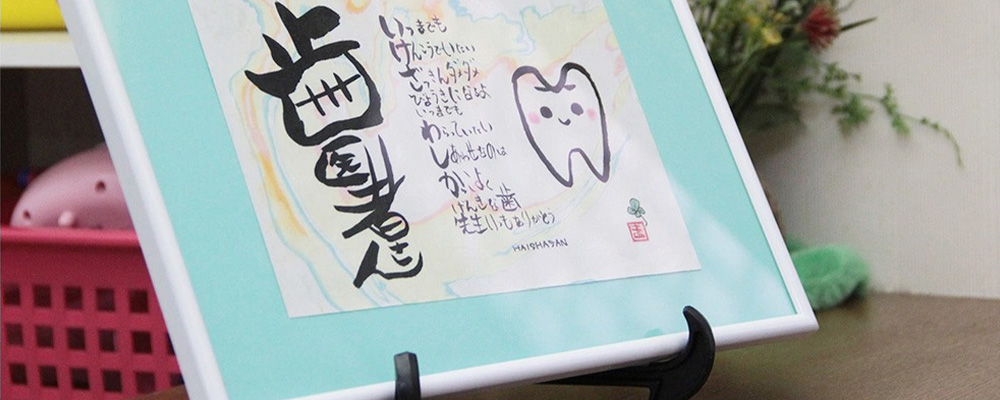 歯医者さん
いつまでも
けんこうでいたい
ざっきんダメダメ
びょうきになるよ
いつまでも
わらっていたい
しあわせなのは
かいよく
げんきな歯
先生いつもありがとう
HAISHASAN